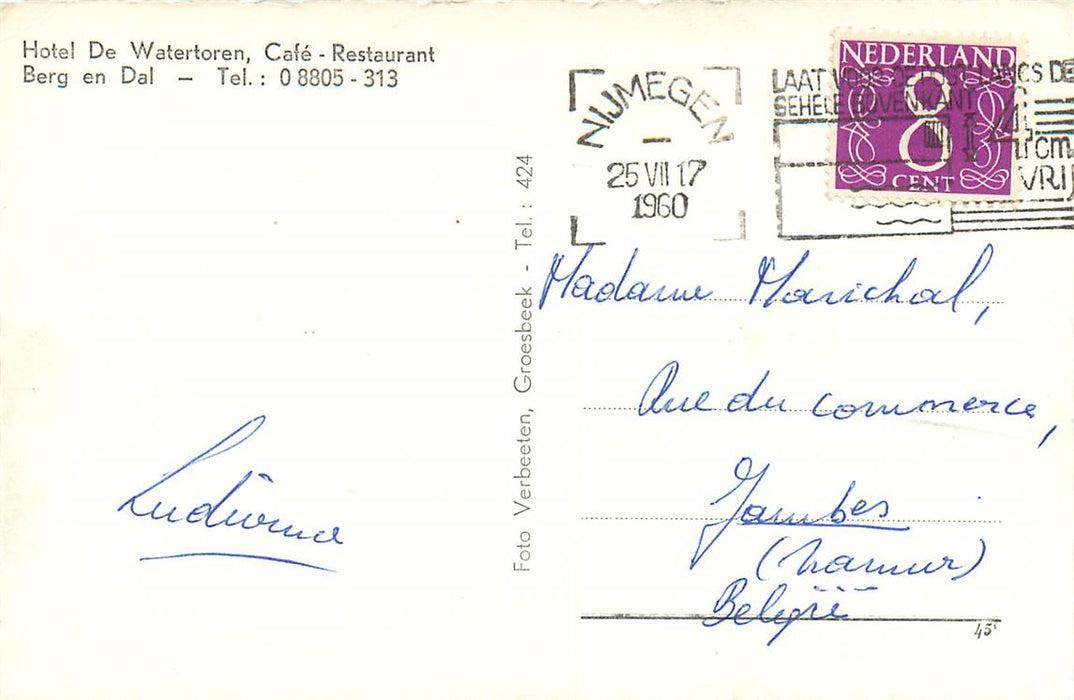 Hotel De Watertoren, Café - Restaurant
Berg en Dal — Tel.: 0 8805 - 313
NIJMEGEN
25 VII 17
1960
LAAT VOOR DE LANGS DE
GEHELE BOVENKANT
4
cm
VRIJ
NEDERLAND
8
CENT
Foto Verbeeten, Groesbeek - Tel. : 424
Madame Marichal,
Rue du commerce,
Jambes
(Namur)
België
45